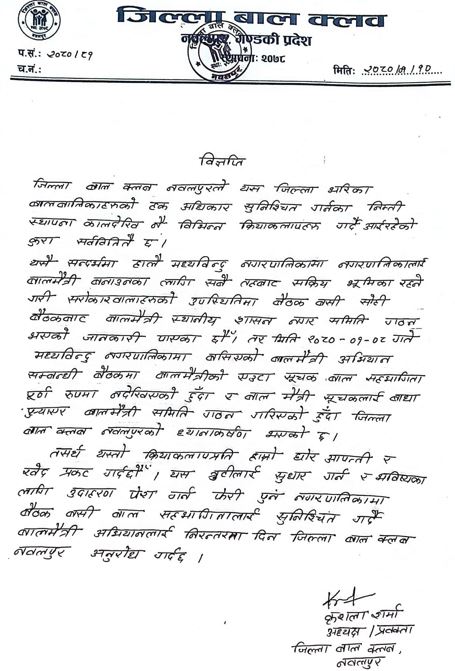 जिल्ला बाल क्लव
नवलपुर, गण्डकी प्रदेश
स्थापनाः २०७८
प.सं.: २०८०/८१
च.नं.:
मितिः २०८०/९/१०
विज्ञप्ति
जिल्ला बाल क्लब नवलपुरले यस जिल्ला भरिका
बालबालिकाहरुको हक अधिकार सुनिश्चित गर्नका निम्ती
स्थापना कालदेखि नै विभिन्न क्रियाकलापहरु गर्दै आईरहेको
कुरा सर्वविदितै छ ।
यसै सन्दर्भमा हालै मध्यविन्दु नगरपालिकामा नगरपालिकालाई
बालमैत्री बनाउनका लागि सबै तहबाट सक्रिय भूमिका रहने
गरी सरोकारवालाहरुको उपस्थितिमा बैठक बसी सोही
बैठकबाट बालमैत्री स्थानीय शासन नगर समिति गठन
भएको जानकारी पाएका छौं। तर मिति २०८०-०९-०८ गते
मध्यविन्दु नगरपालिकामा बसिएको बालमैत्री अभियान
सम्बन्धी बैठकमा बालमैत्रीको एउटा सूचक बाल सहभागिता
पूर्ण रुपमा नदेखिएको हुँदा र बाल मैत्री सूचकलाई बाधा
पुर्‍याएर बालमैत्री समिति गठन गरिएको हुँदा जिल्ला
बाल क्लब नवलपुरको ध्यानाकर्षण भएको छ ।
तसर्थ यस्तो क्रियाकलापप्रति हाम्रो घोर आपत्ती र
खेद प्रकट गर्दछौँ । यस त्रुटीलाई सुधार गर्न र भविष्यका
लागि उदाहरण पेश गर्न फेरी पुनः नगरपालिकामा
बैठक बसी बाल सहभागितालाई सुनिश्चित गर्दै
बालमैत्री अभियानलाई निरन्तरता दिन जिल्ला बाल क्लब
नवलपुर अनुरोध गर्दछ ।
शर्मा
अध्यक्ष / प्रवक्ता
जिल्ला बाल क्लब,
नवलपुर